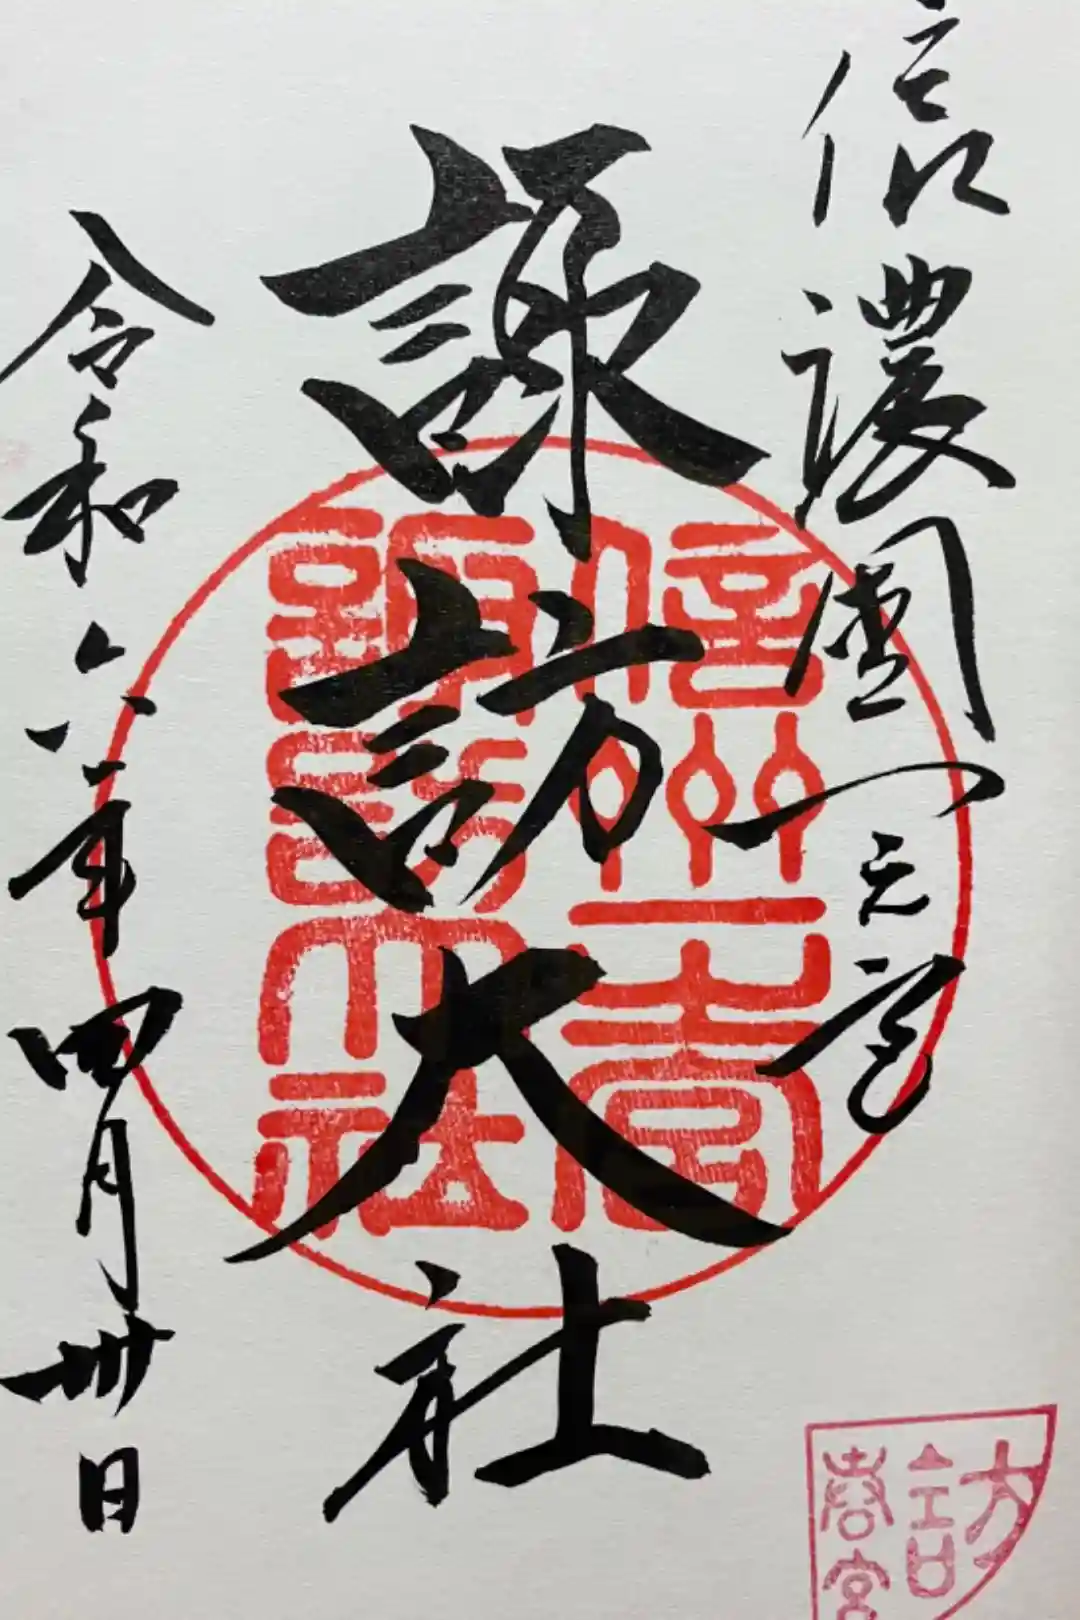 信濃國一之宮
諏訪大社
令和六年四月卅日
信州一之宮
諏訪大社
訪
春宮